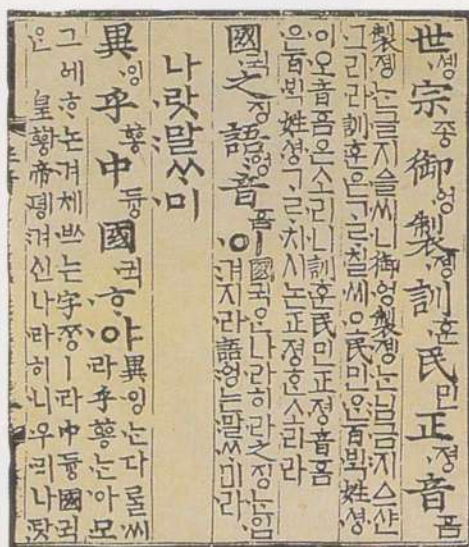 世솅宗종御ᅌᅥᆼ製졩訓훈民민正져ᇰ音ᅙᅳᆷ
製졩ᄂᆞᆫ글지ᅀᅳᆯ씨니御ᅌᅥᆼ製졩ᄂᆞᆫ님금지ᅀᅳ샨
그리라訓훈은ᄀᆞᄅᆞ칠씨오民민ᄋᆞᆫ百ᄇᆡᆨ姓셔ᇰ
이오音ᅙᅳᆷ은소리니訓훈民민正져ᇰ音ᅙᅳᆷ
은百ᄇᆡᆨ姓셔ᇰᄀᆞᄅᆞ치시논正져ᇰᄒᆞᆫ소리라
國귁之징語ᅌᅥᆼ音ᅙᅳᆷ이
國귁ᄋᆞᆫ나라히라之징ᄂᆞᆫ입
겨지라語ᅌᅥᆼ는말ᄊᆞ미라
나랏말ᄊᆞ미
異잉乎ᅘᅩᆼ中듀ᇰ國귁ᄒᆞ야
異잉ᄂᆞᆫ다ᄅᆞᆯ씨
라乎ᅘᅩᆼᄂᆞᆫ아모
그ᅌᅦᄒᆞ논겨체ᄡᅳ는字ᄍᆞᆼㅣ라中듀ᇰ國귁
ᄋᆞᆫ皇ᅘᅪᇰ帝뎽겨신나라히니우리나랏